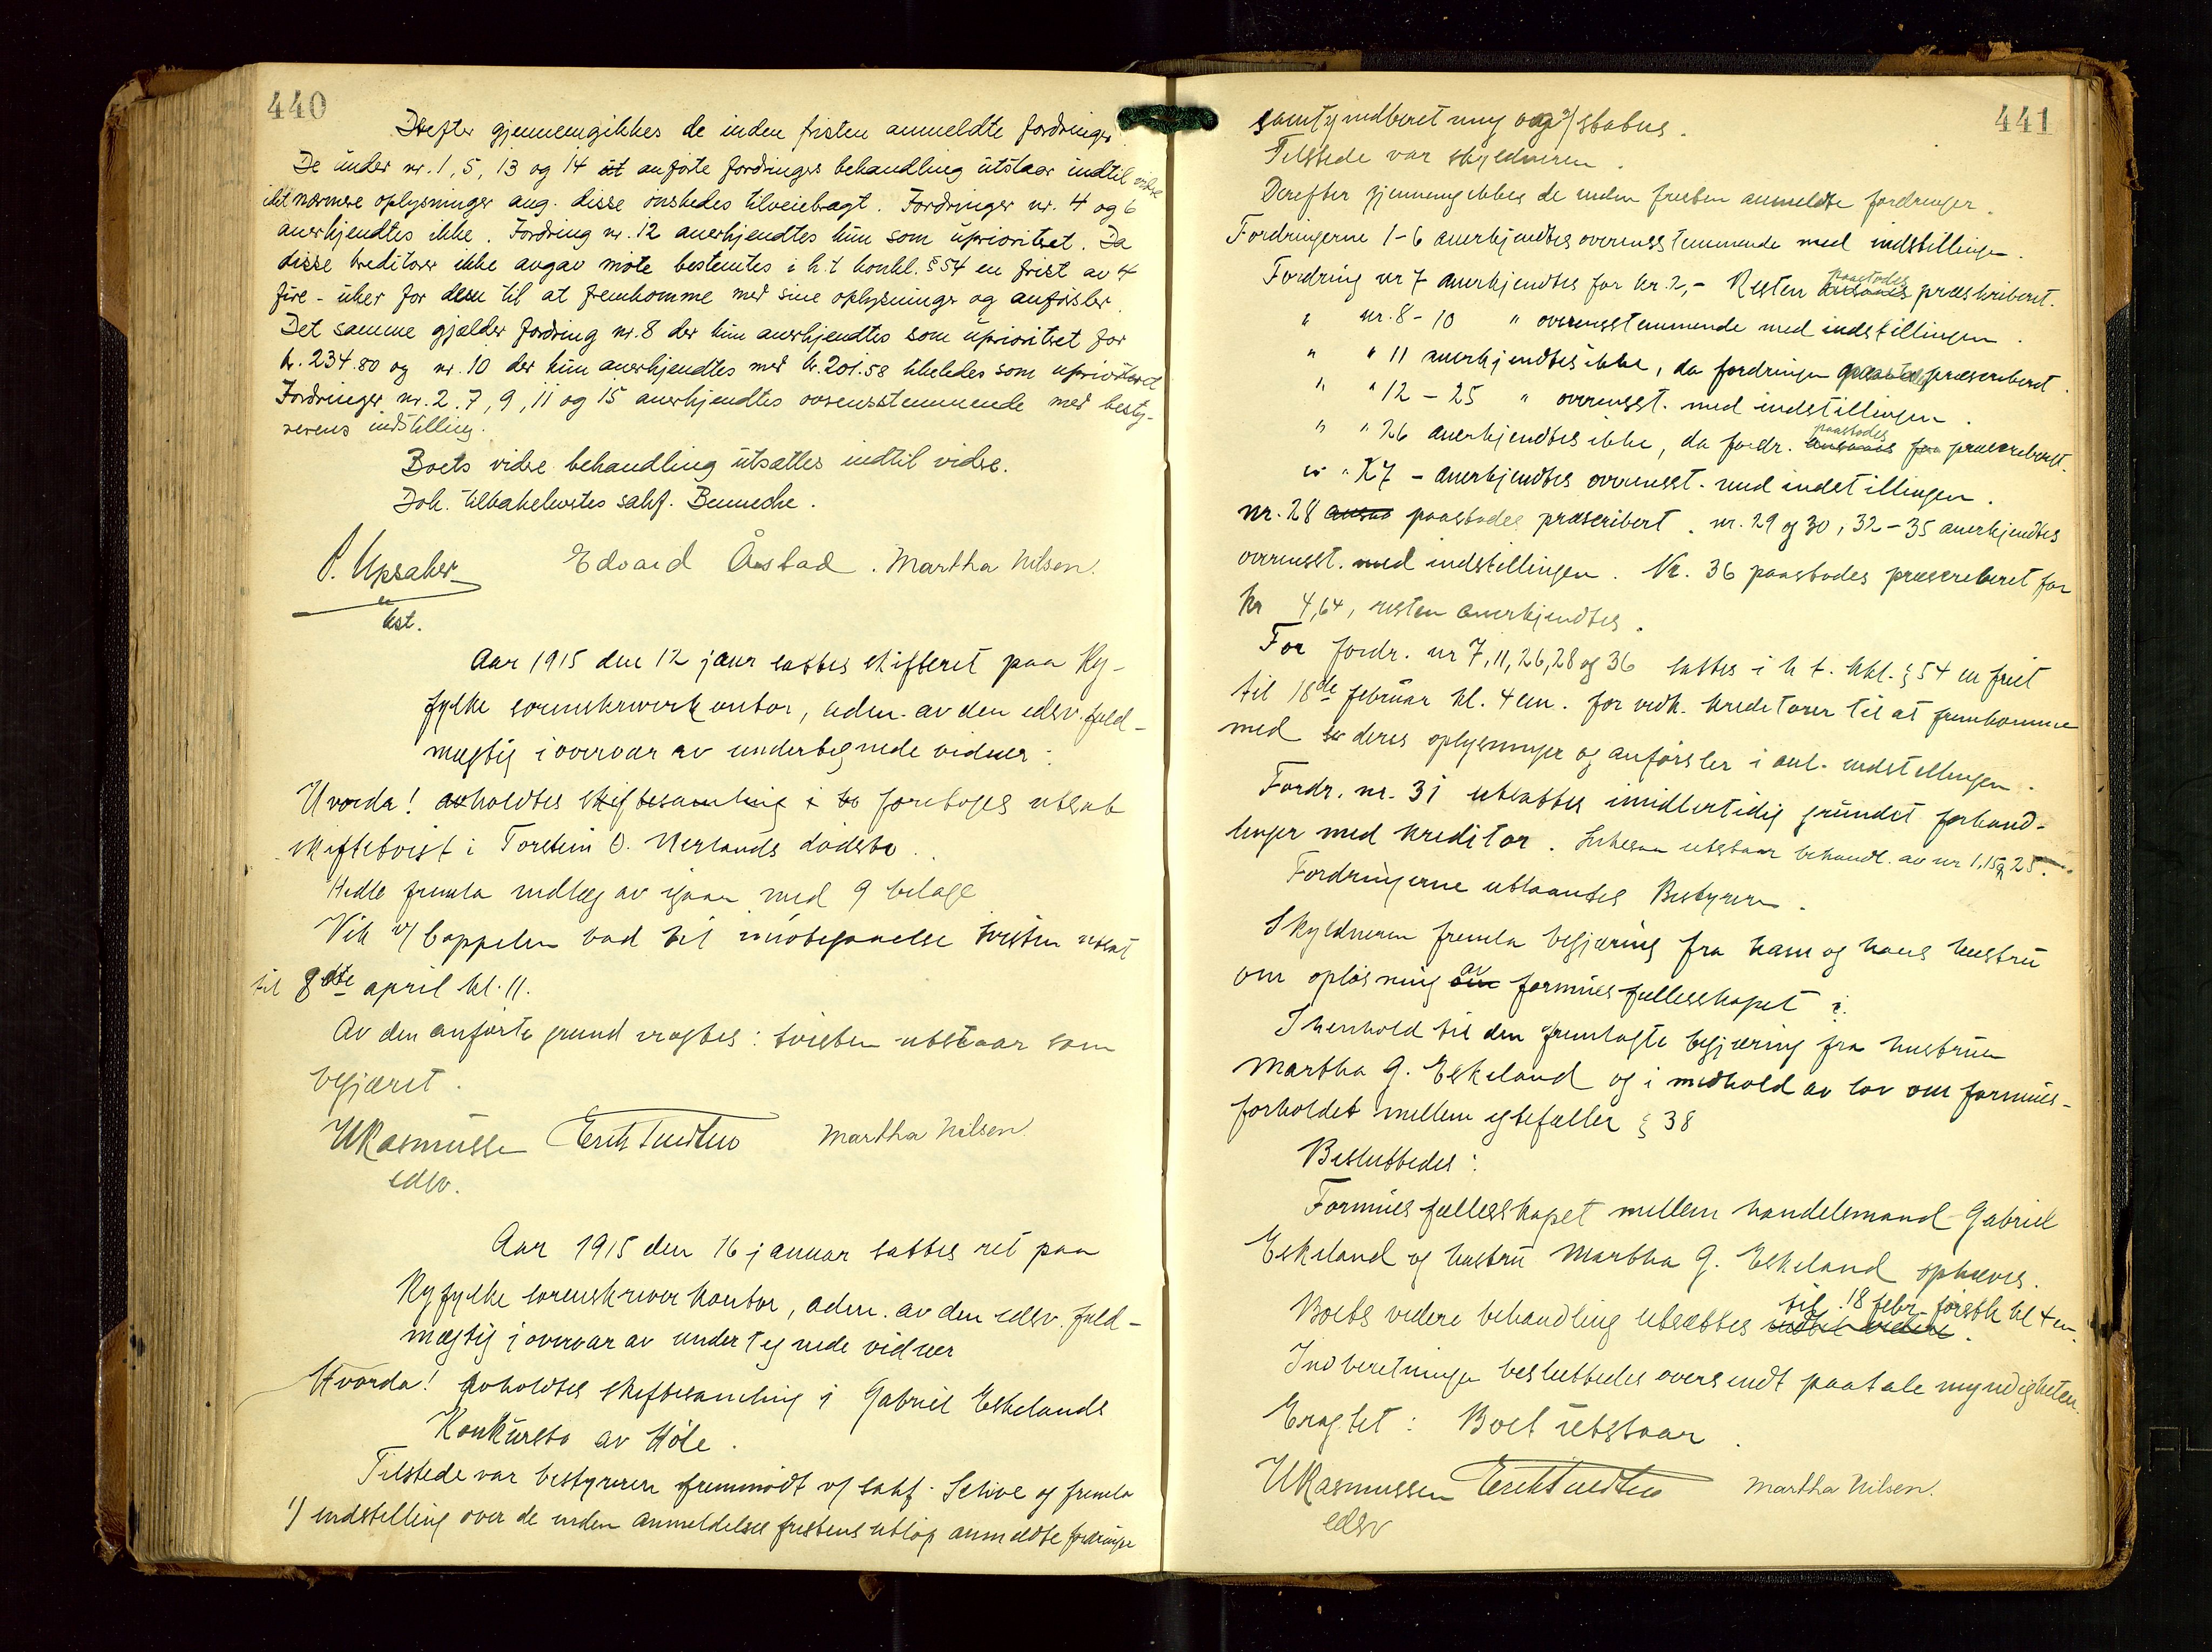 440
Derefter gjennemgikkes de inden fristen anmeldte fordringer.
De under nr. 1, 5, 13 og 14 ut anførte fordringers behandling utstaar indtil videre
idet nærmere oplysninger ang. disse ønskedes tilveiebragt. Fordringer nr. 4 og 6
anerkjendtes ikke. Fordring nr. 12 anerkjendtes kun som uprioritert. Da
disse kreditorer ikke avgav møte bestemtes i h.t konkl. § 54 en frist av 4
fire - uker for dem til at fremkomme med sine oplysninger og anførsler.
Det samme gjælder fordring nr. 8 der kun anerkjendtes som uprioritert for
kr. 234.80 og nr. 10 der kun anerkjendtes med kr. 201.58 likeledes som uprioritert
Fordringer nr. 2, 7, 9, 11 og 15 anerkjendtes overensstemmende med besty-
rerens indstilling.
Boets vidre behandling utsattes indtil vidre.
Dok. tilbakelevertes sakf. Benneche.
P. Upsaker Edvard Åstad. Martha Nilsen.
kst.
Aar 1915 den 12 januar sattes skifteret paa Ry-
fylke sorenskriverkontor, adm. av den edsv. fuld-
mægtig i overvær av undertegnede vidner:
Hvorda! avholdtes skiftesamling i bo foretoges utsat
skiftetvist i Torstein O. Nerlands dødsbo.
Hedle fremla indlæg av igaar med 9 bilage
Vik v/ Cappelen bad til imøtegaaelse tvisten utsat
til 8de april kl. 11.
Av den anførte grund eragtes: tvisten utstaar som
begjæret.
URasmussen Martha Nilsen.
edsv.
Aar 1915 den 16 januar sattes ret paa
Ryfylke sorenskriverkontor, adm. av den edsv. fuld-
mægtig i overvær av undertegnede vidner
Hvorda! avholdtes skiftesamling i Gabriel Eskelands
Konkursbo av Høle.
Tilstede var bestyreren fremmødt v/ sakf. Schive og fremla
1) indstilling over de inden anmeldelsesfristens utløp anmeldte fordringer
441
samt indberetning og 2/ status.
Tilstede var skyldneren.
Derefter gjennemgikkes de inden fristen anmeldte fordringer.
Fordringerne 1-6 anerkjendtes overensstemmende med indstillingen.
Fordring nr 7 anerkjendtes for kr. 2,- Resten paastodes preskriberet.
" nr. 8 - 10 " overensstemmende med indstillingen.
" " 11 anerkjendtes ikke, da fordringen paastodes præscriberet.
" " 12 - 25 " overensst. med indstillingen.
" " 26 anerkjendtes ikke, da fordr. paastodes præscriberet.
" " 27 - anerkjendtes overensst. med indstillingen.
nr. 28 paastodes præscribert. nr. 29 og 30, 32-35 anerkjendtes
overensst. med indstillingen. Nr. 36 paastodes præscreberet for
kr 4,64, resten anerkjendtes.
For fordr. nr 7, 11, 26, 28 og 36 sattes i h t. kkl. § 54 en frist
til 18de februar kl. 4 em. for vedk. kreditorer til at fremkomme
med deres oplysninger og anførsler i anl. indstillingen.
Fordr. nr. 31 utsattes imidlertidig grundet forhand-
linger med kreditor. Likesaa utstaar behandl. av nr 1, 15 og 25.
Fordringerne utlaantes Bestyreren.
Skyldneren fremla begjæring fra ham og hans hustru
om opløsning av formuesfællesskapet.
I henhold til den fremlagte begjæring fra hustruen
Martha G. Eskeland og i medhold av lov om formues-
forholdet mellem egtefæller § 38
Besluttedes:
Formuesfællesskapet mellem handelsmand Gabriel
Eskeland og hustru Martha G. Eskeland ophæves.
Boets videre behandling utsættes til 18 febr. førstk kl 4 em.
indtil videre
Indberetningen besluttedes oversendt paatalemyndigheten.
Eragtet: Boet utstaar.
URasmussen Martha Nilsen.
edsv